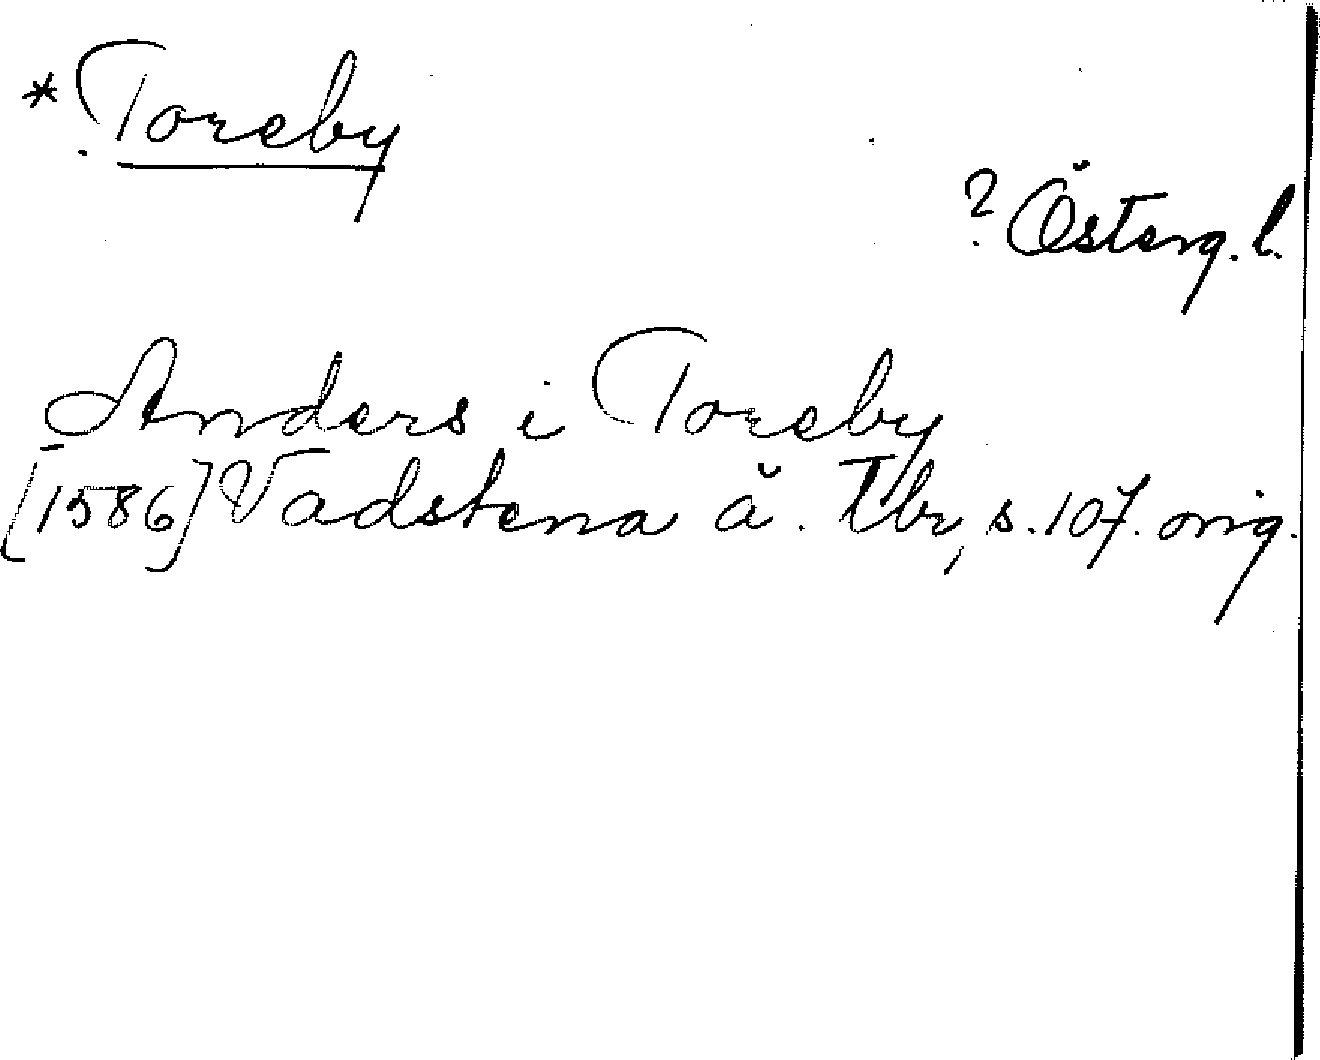 *Toreby
? Österg. l.
Anders i Toreby
[1586] Vadstena ä. Tbr, s. 107. orig.